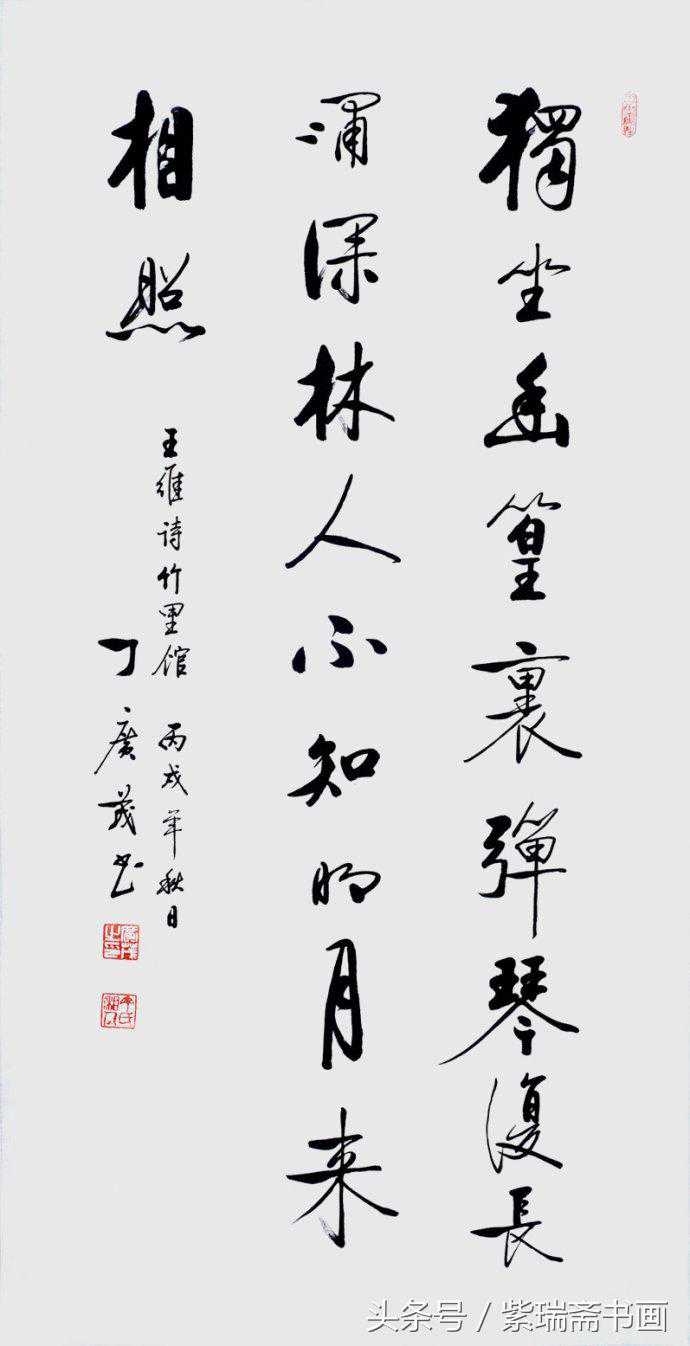 獨坐幽篁裏彈琴復長
嘯深林人不知明月来
相照
王維诗竹里馆 丙戌年秋日
丁廣茂书
头条号 / 紫瑞斋书画